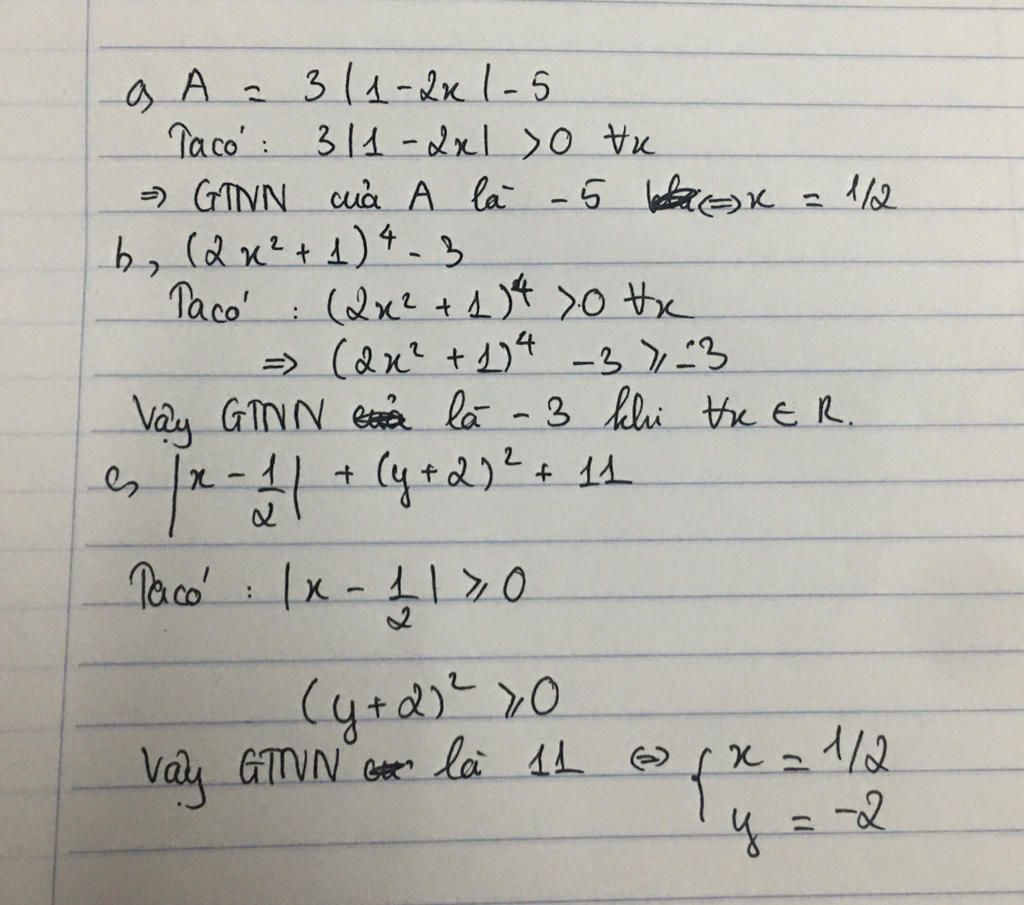 a, A = 3|1-2x| - 5
Ta có: 3|1-2x| >0 ∀x
⇒ GTNN của A là -5 ⇔ x = 1/2
b, (2x² + 1)⁴ - 3
Ta có : (2x² + 1)⁴ >0 ∀x
⇒ (2x² + 1)⁴ - 3 ⩾ -3
Vậy GTNN là -3 khi ∀x ∈ R.
c, |x - 1/2| + (y+2)² + 11
Ta có : |x - 1/2| ⩾ 0
(y+2)² ⩾ 0
Vậy GTNN là 11 ⇔ { x = 1/2
y = -2